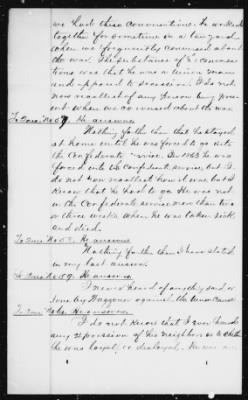 we had these conversations. He worked
together for sometime in a law yard
when we frequently conversed about
the war. The substance of conversa
tions was that he was a Union man
and opposed to secession. I do not
now recollect of any person being pres
ent when we conversed about the war.
To Ques No 57. He answers
Nothing further than he stayed
at home until he was forced to go into
the Confederate service. In 1863 he was
forced into the Confederate service, but I
do not now recollect how it was but I
know that he had to go. He was not
in the Confederate service more than two
or three weeks when he was taken sick
and died.
To Ques No 58. He answers
Nothing further than I have stated
in my last answer.
To Ques No 59. He answers
I never heard of anything said, or
done by Waggoner against the Union Cause
To Ques No He answers
I do not know that I ever heard
any expression of his neighbors as to whether
he was loyal or disloyal.